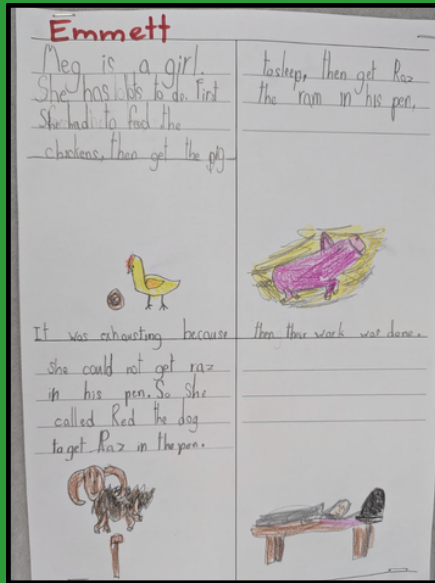 Emmett
Meg is a girl.
She has lots to do. First
She had to feed the
chickens, then get the pig
to sleep, then get Raz
the ram in his pen.
It was exhausting because
she could not get raz
in his pen. So she
called Red the dog
to get Raz in the pen.
then their work was done.